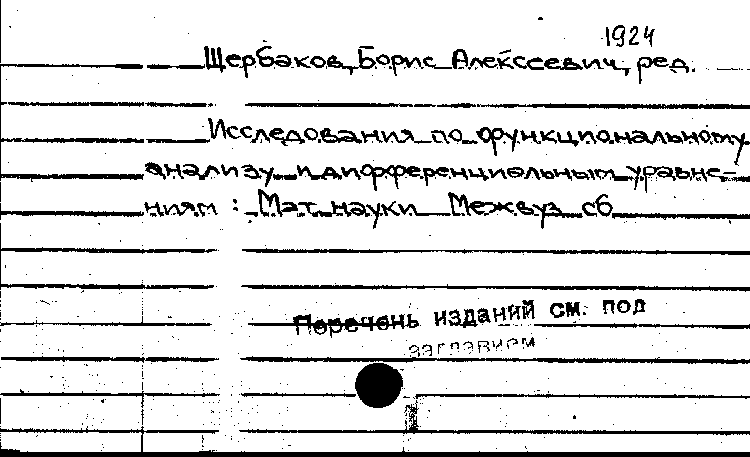 1924
Щербаков, Борис Алексеевич, ред.
Исследования по функциональному
анализу и дифференциальным уравне-
ниям : Мат. науки Межвуз. сб.
Перечень изданий см. под
заглавием